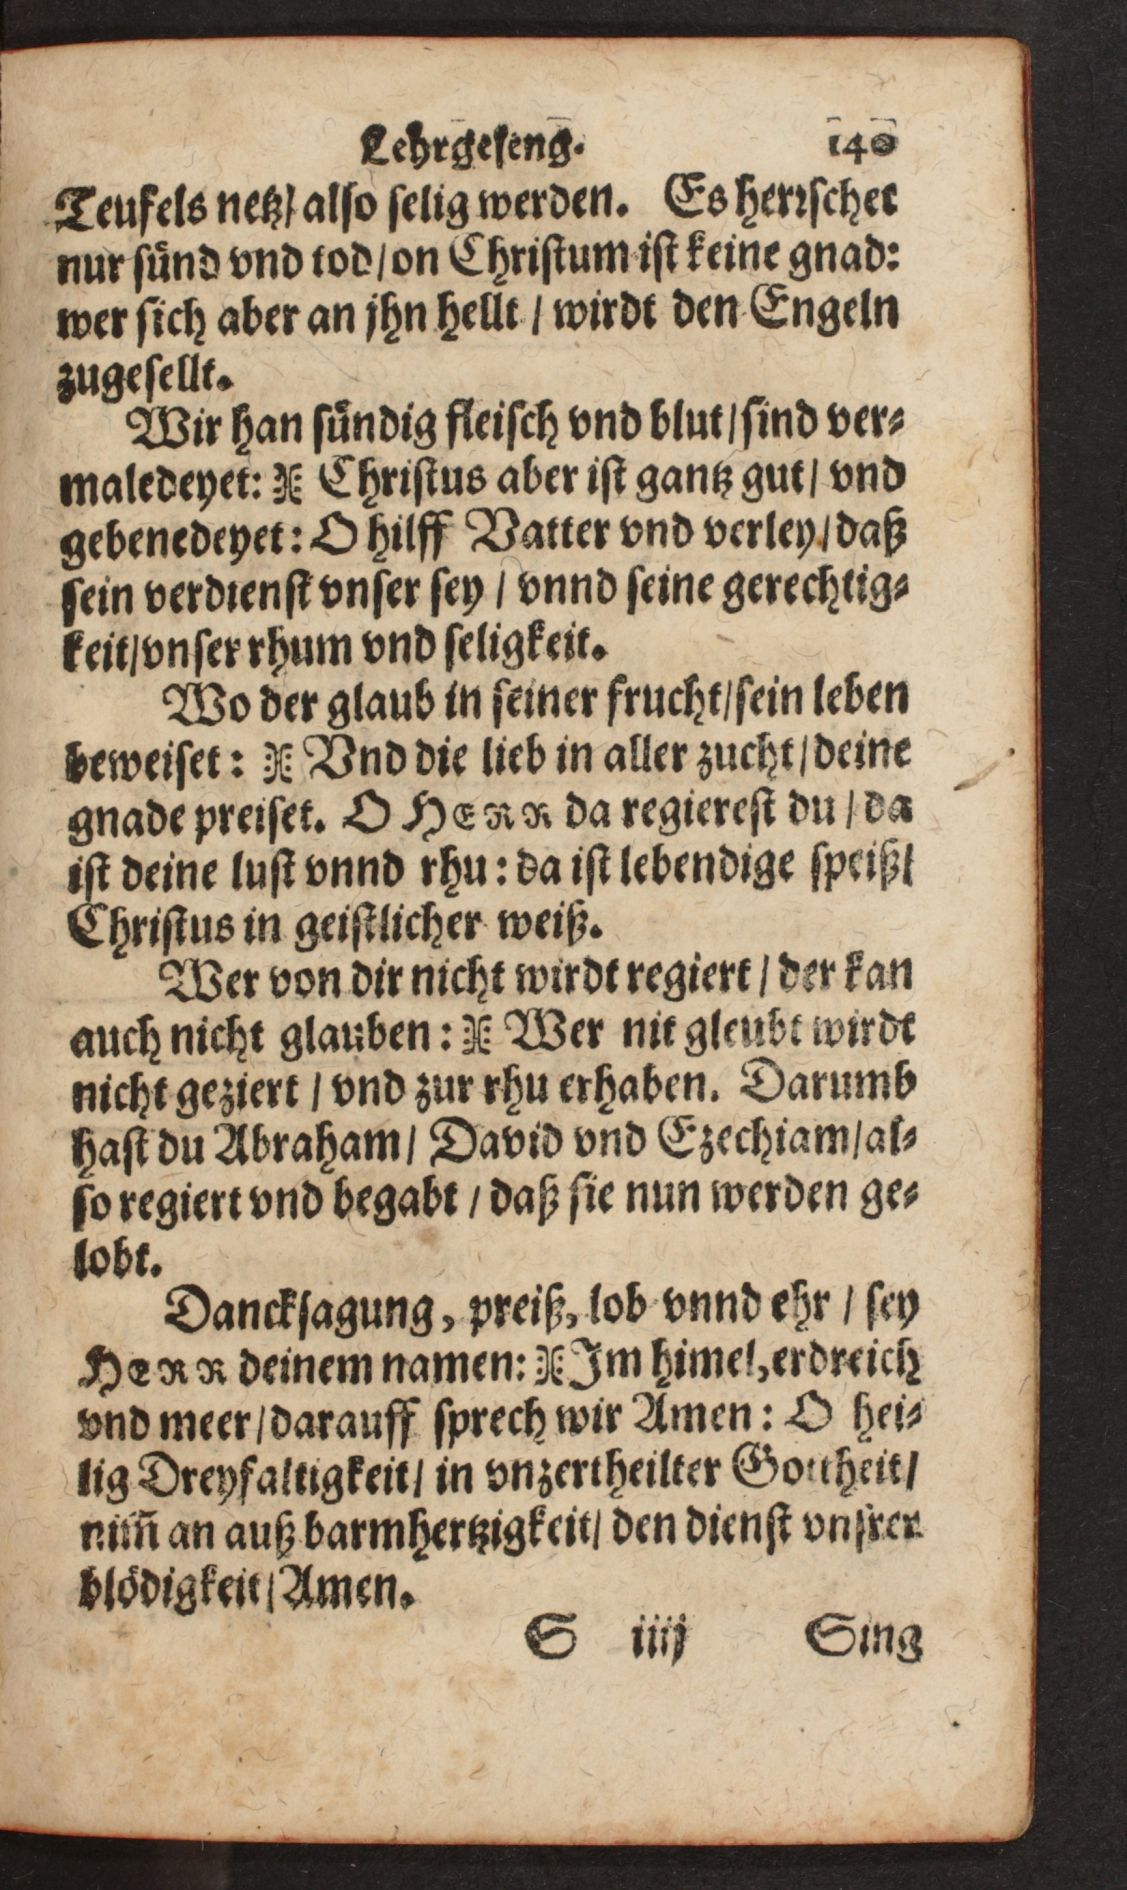 Lehrgeseng. 140
Teufels netz/ also selig werden. Es herrschet
nur sünd vnd tod/ on Christum ist keine gnad:
wer sich aber an jhn hellt / wirdt den Engeln
zugesellt.
Wir han sündig fleisch vnd blut/ sind ver⸗
maledeyet: ※ Christus aber ist gantz gut/ vnd
gebenedeyet: O hilff Vatter vnd verley/ daß
sein verdienst vnser sey / vnnd seine gerechtig⸗
keit/ vnser rhum vnd seligkeit.
Wo der glaub in seiner frucht/ sein leben
beweiset: ※ Vnd die lieb in aller zucht/ deine
gnade preiset. O HERR da regierest du / da
ist deine lust vnnd rhu: da ist lebendige speiß/
Christus in geistlicher weiß.
Wer von dir nicht wirdt regiert / der kan
auch nicht glauben: ※ Wer nit gleubt wirdt
nicht geziert / vnd zur rhu erhaben. Darumb
hast du Abraham/ David vnd Ezechiam/ al⸗
so regiert vnd begabt / daß sie nun werden ge⸗
lobt.
Dancksagung, preiß, lob vnnd ehr / sey
HERR deinem namen: ※ Im himel, erdreich
vnd meer/ darauff sprech wir Amen: O hei⸗
lig Dreyfaltigkeit/ in vnzertheilter Gottheit/
nim̃ an auß barmhertzigkeit/ den dienst vnsrer
blödigkeit/ Amen.
S iiij Sing